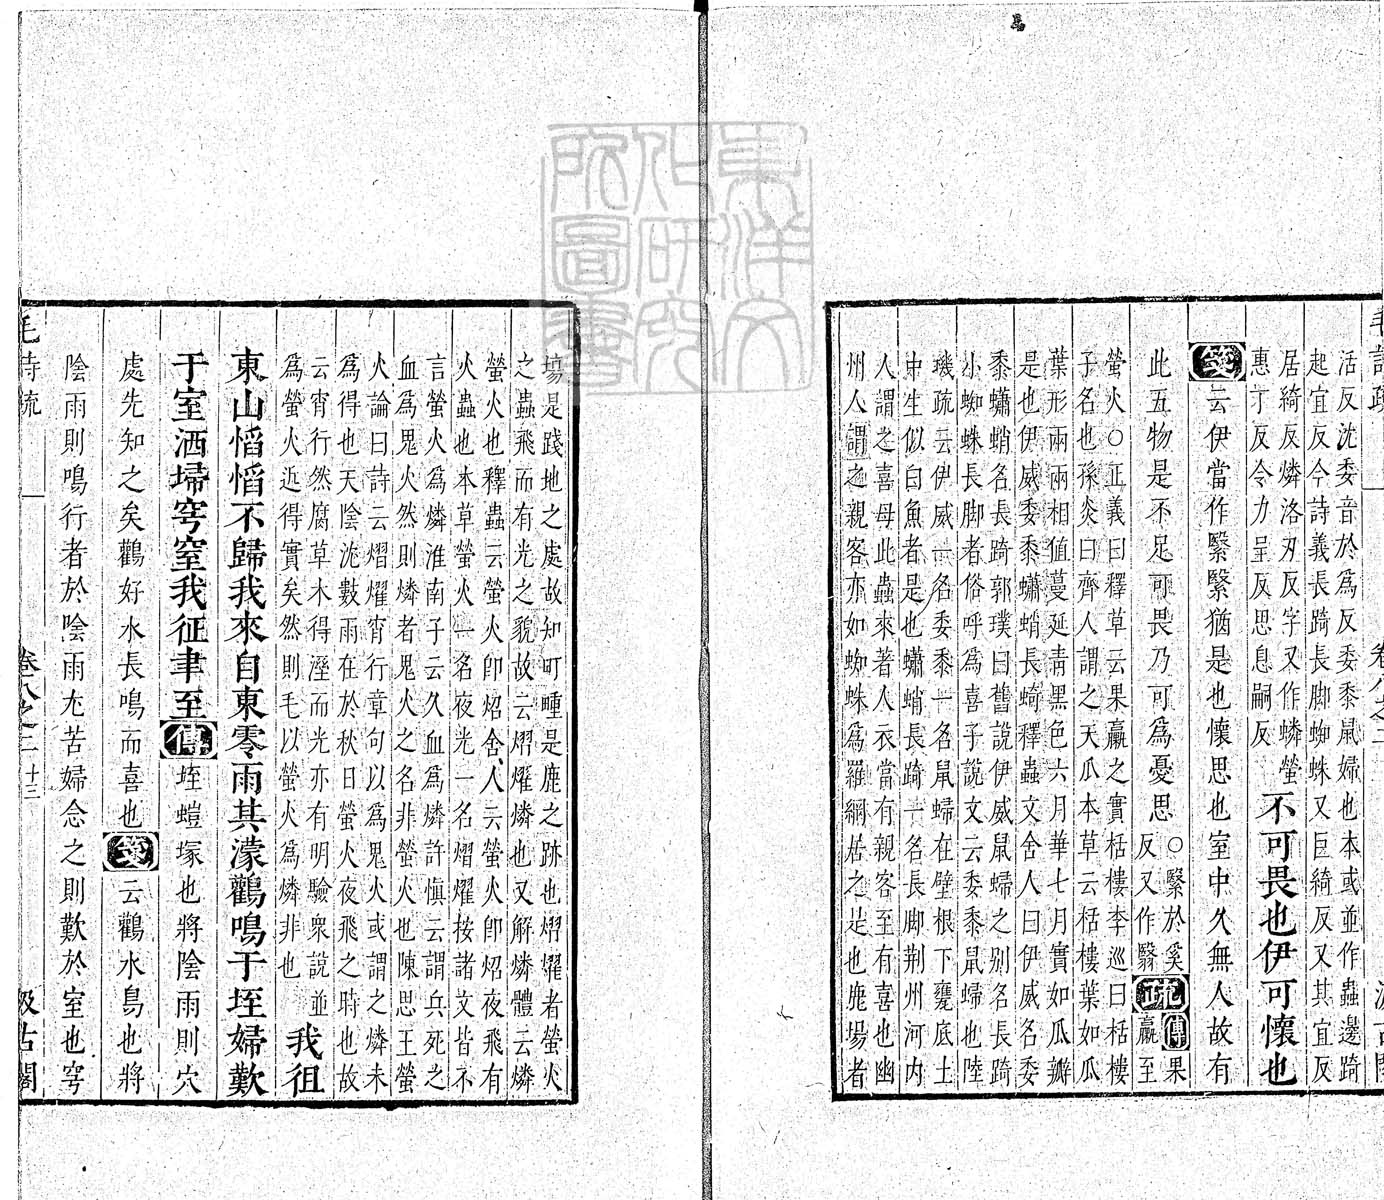 活反沈委音於爲反委黍鼠婦也本或並作蟲邊踦
起宜反今詩義長踦長脚蜘蛛又巨綺反又其宜反
居綺反燐洛刃反字又作蟒螢
惠丁反令力呈反思息嗣反
不可畏也伊可懷也
箋云伊當作繄繄猶是也懷思也室中久無人故有
此五物是不足可畏乃可爲憂思
○繄於奚
反又作翳
疏
傳果
臝至
螢火○正義曰釋草云果臝之實栝樓李巡曰栝樓
子名也孫炎曰齊人謂之天瓜本草云栝樓葉如瓜
葉形兩兩相值蔓延青黑色六月華七月實如瓜瓣
是也伊威委黍蠨蛸長踦釋蟲文舍人曰伊威名委
黍蠨蛸名長踦郭璞曰舊說伊威鼠婦之别名長踦
小蜘蛛長脚者俗呼爲喜子說文云委黍鼠婦也陸
璣疏云伊威一名委黍一名鼠婦在壁根下甕底土
中生似白魚者是也蠨蛸長踦一名長脚荆州河内
人謂之喜母此蟲來著人衣當有親客至有喜也幽
州人謂之親客亦如蜘蛛爲羅網居之是也鹿場者
場是踐地之處故知町畽是鹿之跡也熠燿者螢火
之蟲飛而有光之貌故云熠燿燐也又解燐體云燐
螢火也釋蟲云螢火卽炤舍人云螢火卽炤夜飛有
火蟲也本草螢火一名夜光一名熠燿按諸文皆不
言螢火爲燐淮南子云久血爲燐許愼云謂兵死之
血爲鬼火然則燐者鬼火之名非螢火也陳思王螢
火論曰詩云熠燿宵行章句以爲鬼火或謂之燐未
爲得也天陰沈數雨在於秋日螢火夜飛之時也故
云宵行然腐草木得溼而光亦有明驗衆說並
爲螢火近得實矣然則毛以螢火爲燐非也
我徂
東山慆慆不歸我來自東零雨其濛鸛鳴于垤婦歎
于室洒埽穹窒我征聿至傳垤螘塚也將陰雨則穴
處先知之矣鸛好水長鳴而喜也箋云鸛水鳥也將
陰雨則鳴行者於陰雨尤苦婦念之則歎於室也穹
毛詩疏
卷八之二
十三
汲古閣